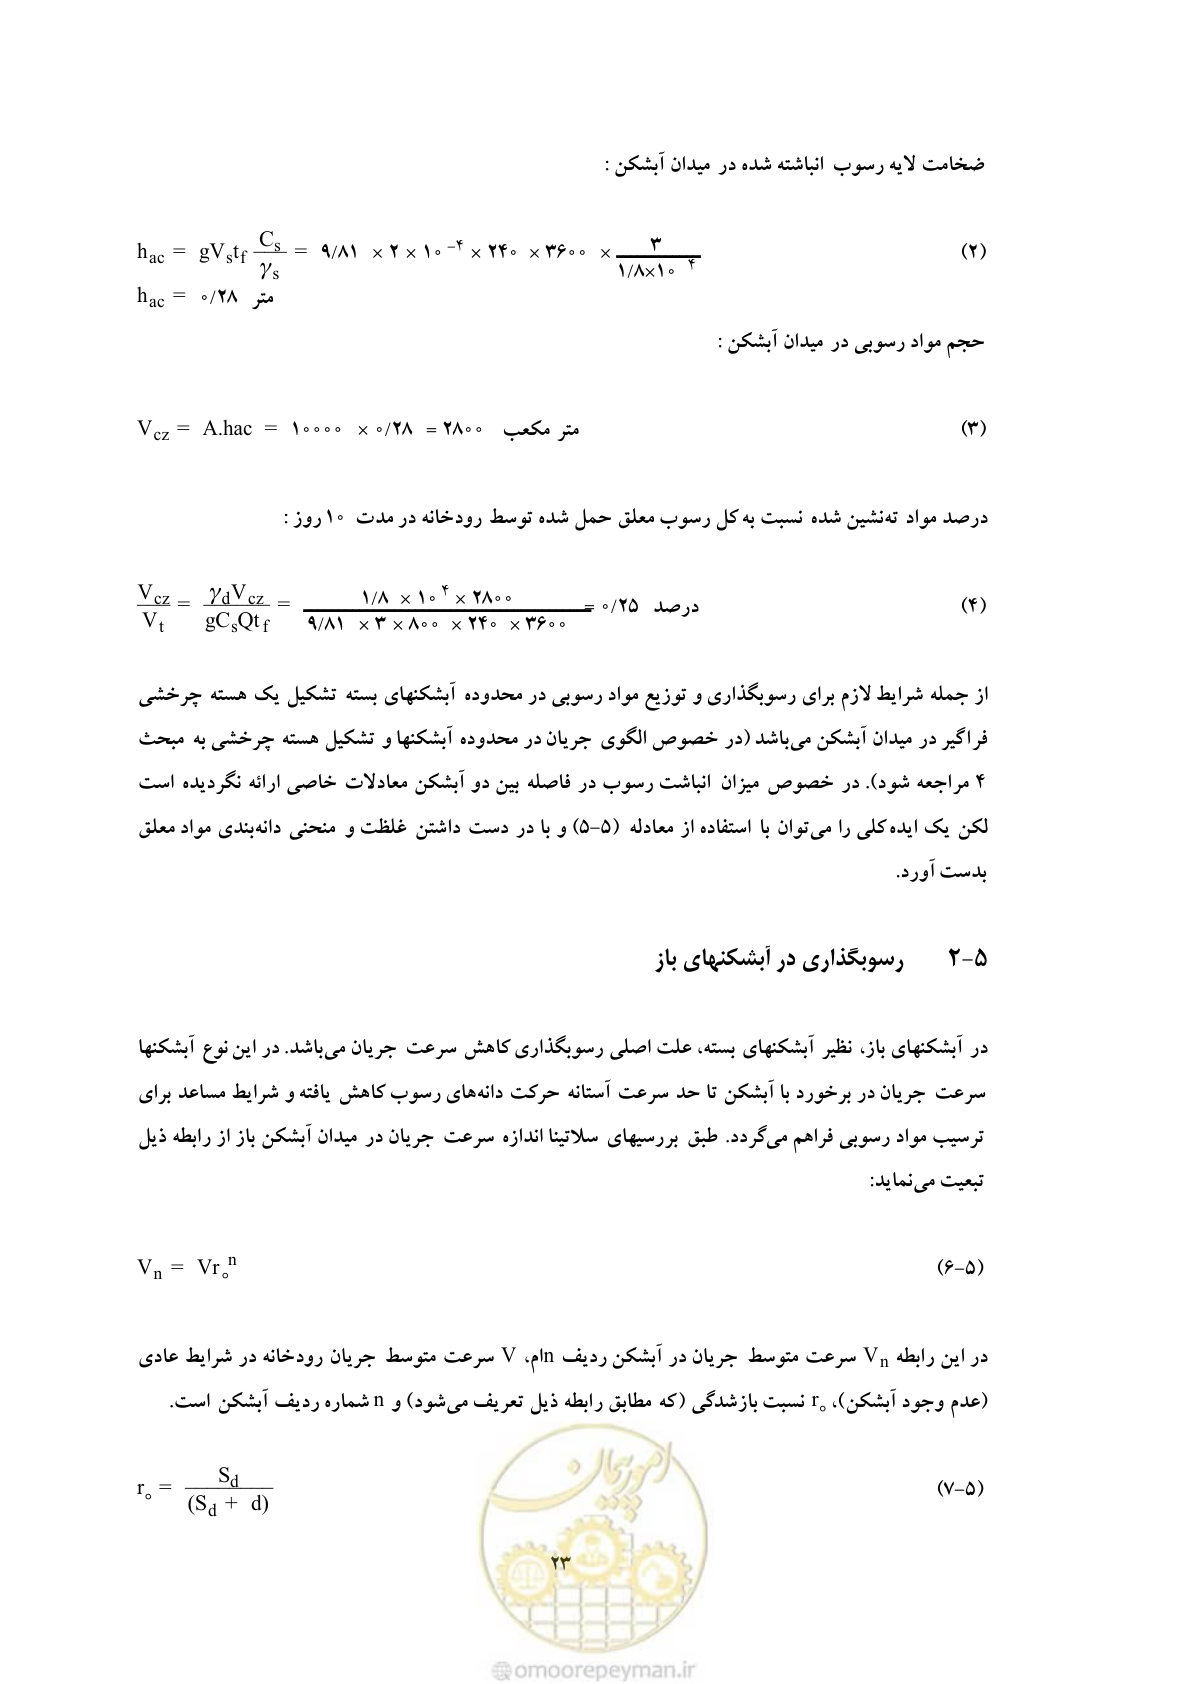 ضخامت لایه رسوب انباشته شده در میدان آبشکن :
h_ac = gV_s t_f C_s/γ_s = ۹/۸۱ × ۲ × ۱۰^-۴ × ۲۴۰ × ۳۶۰۰ × ۳/(۱/۸×۱۰^۴) (۲)
h_ac = ۰/۲۸ متر
حجم مواد رسوبی در میدان آبشکن :
V_cz = A.hac = ۱۰۰۰۰ × ۰/۲۸ = ۲۸۰۰ متر مکعب (۳)
درصد مواد ته‌نشین شده نسبت به کل رسوب معلق حمل شده توسط رودخانه در مدت ۱۰ روز :
V_cz/V_t = γ_d V_cz/(gC_s Qt_f) = (۱/۸ × ۱۰^۴ × ۲۸۰۰)/(۹/۸۱ × ۳ × ۸۰۰ × ۲۴۰ × ۳۶۰۰) = ۰/۲۵ درصد (۴)
از جمله شرایط لازم برای رسوبگذاری و توزیع مواد رسوبی در محدوده آبشکنهای بسته تشکیل یک هسته چرخشی
فراگیر در میدان آبشکن می‌باشد (در خصوص الگوی جریان در محدوده آبشکنها و تشکیل هسته چرخشی به مبحث
۴ مراجعه شود). در خصوص میزان انباشت رسوب در فاصله بین دو آبشکن معادلات خاصی ارائه نگردیده است
لکن یک ایده کلی را می‌توان با استفاده از معادله (۵–۵) و با در دست داشتن غلظت و منحنی دانه‌بندی مواد معلق
بدست آورد.
۲–۵ رسوبگذاری در آبشکنهای باز
در آبشکنهای باز، نظیر آبشکنهای بسته، علت اصلی رسوبگذاری کاهش سرعت جریان می‌باشد. در این نوع آبشکنها
سرعت جریان در برخورد با آبشکن تا حد سرعت آستانه حرکت دانه‌های رسوب کاهش یافته و شرایط مساعد برای
ترسیب مواد رسوبی فراهم می‌گردد. طبق بررسیهای سلاتینا اندازه سرعت جریان در میدان آبشکن باز از رابطه ذیل
تبعیت می‌نماید:
V_n = Vr_°^n (۶–۵)
در این رابطه V_n سرعت متوسط جریان در آبشکن ردیف nام، V سرعت متوسط جریان رودخانه در شرایط عادی
(عدم وجود آبشکن)، r_° نسبت بازشدگی (که مطابق رابطه ذیل تعریف می‌شود) و n شماره ردیف آبشکن است.
r_° = S_d/(S_d + d) (۷–۵)
امور پیمان
۲۳
@omoorepeyman.ir